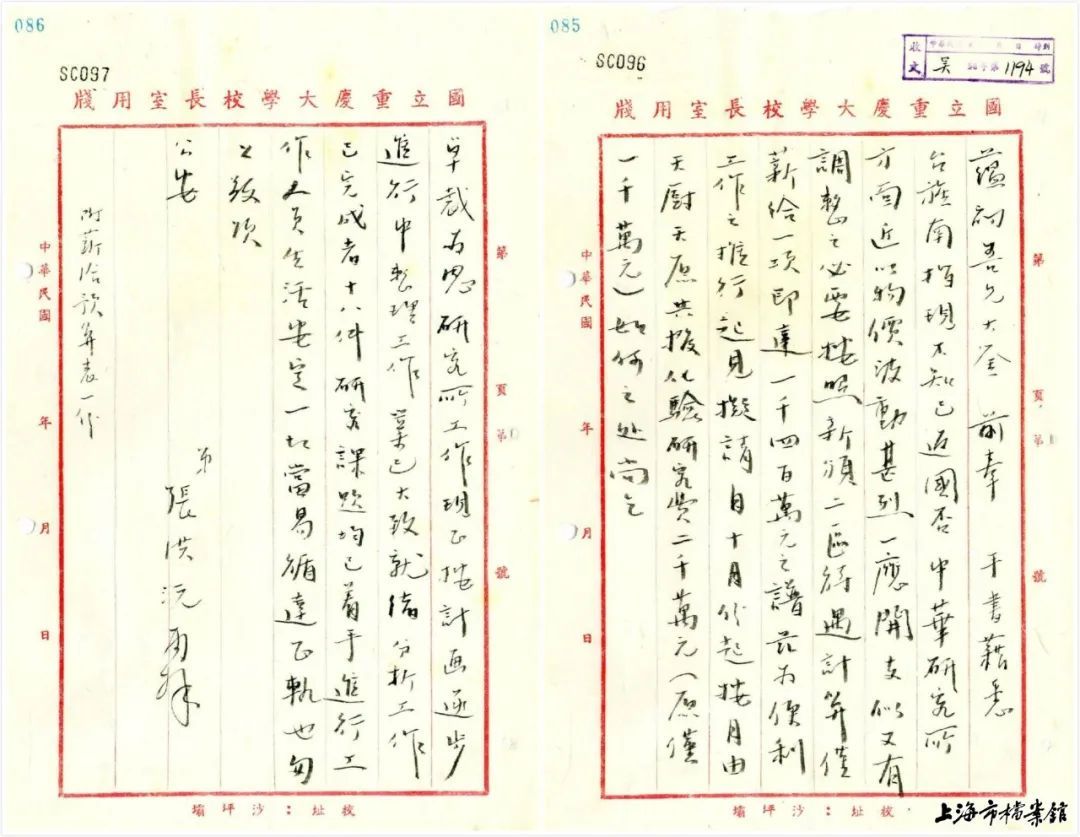 085
SC096
收文
吴
字第1194號
國立重慶大學校長室用牋
蘊初吾兄大鑒 前奉 手書藉悉
台旌南指現不知已返國否中華研究所
方面近以物價波動甚烈一應開支似又有
調整之必要按照新頒二區待遇計算僅
薪給一項即達一千四百萬元之譜茲為便利
工作之推行起見擬請自十月份起按月由
天廚天原共撥化驗研究費二千萬元(原僅
一千萬元)如何之處尚乞
第 頁第 號
中華民國 年 月 日
校址:沙坪壩
上海市檔案館
086
SC097
國立重慶大學校長室用牋
卓裁為感研究所工作現正按計画逐步
進行中整理工作業已大致就緒分析工作
已完成者十八件研究課題均已着手進行工
作人員生活安定一切當易循達正軌也匆
上敬頌
公安
弟張洪沅再拜
附薪給預算表一份
第 頁第 號
中華民國 年 月 日
校址:沙坪壩